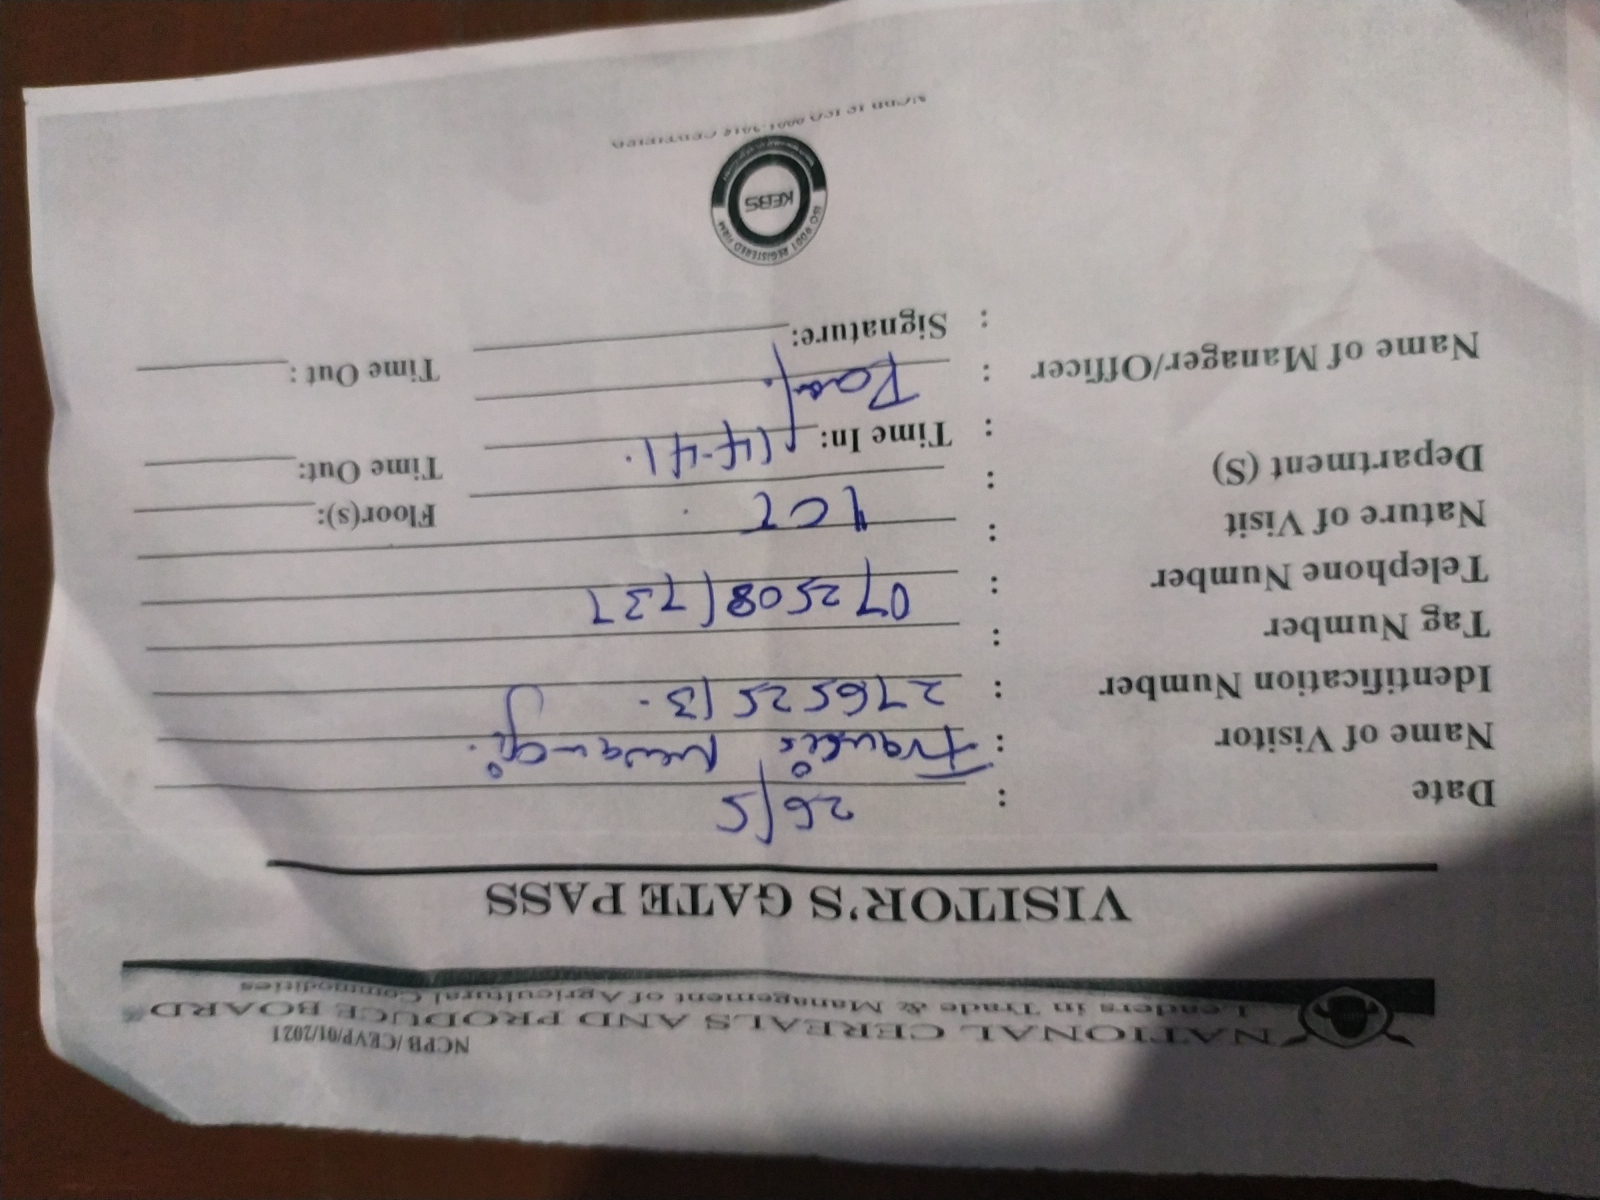 NCPB/CEVP/01/2021
NATIONAL CEREALS AND PRODUCE BOARD
Leaders in Trade & Management of Agricultural Commodities
VISITOR'S GATE PASS
Date : 26/5
Name of Visitor : Francis Mwangi.
Identification Number : 27652513.
Tag Number :
Telephone Number : 0725081737
Nature of Visit :
Department (S) : ICT Floor(s):
: Time In: 14-41. Time Out:
Name of Manager/Officer :
: Signature: Time Out :
ISO 9001 REGISTERED FIRM
KEBS
NCPB IS ISO 9001:2015 CERTIFIED